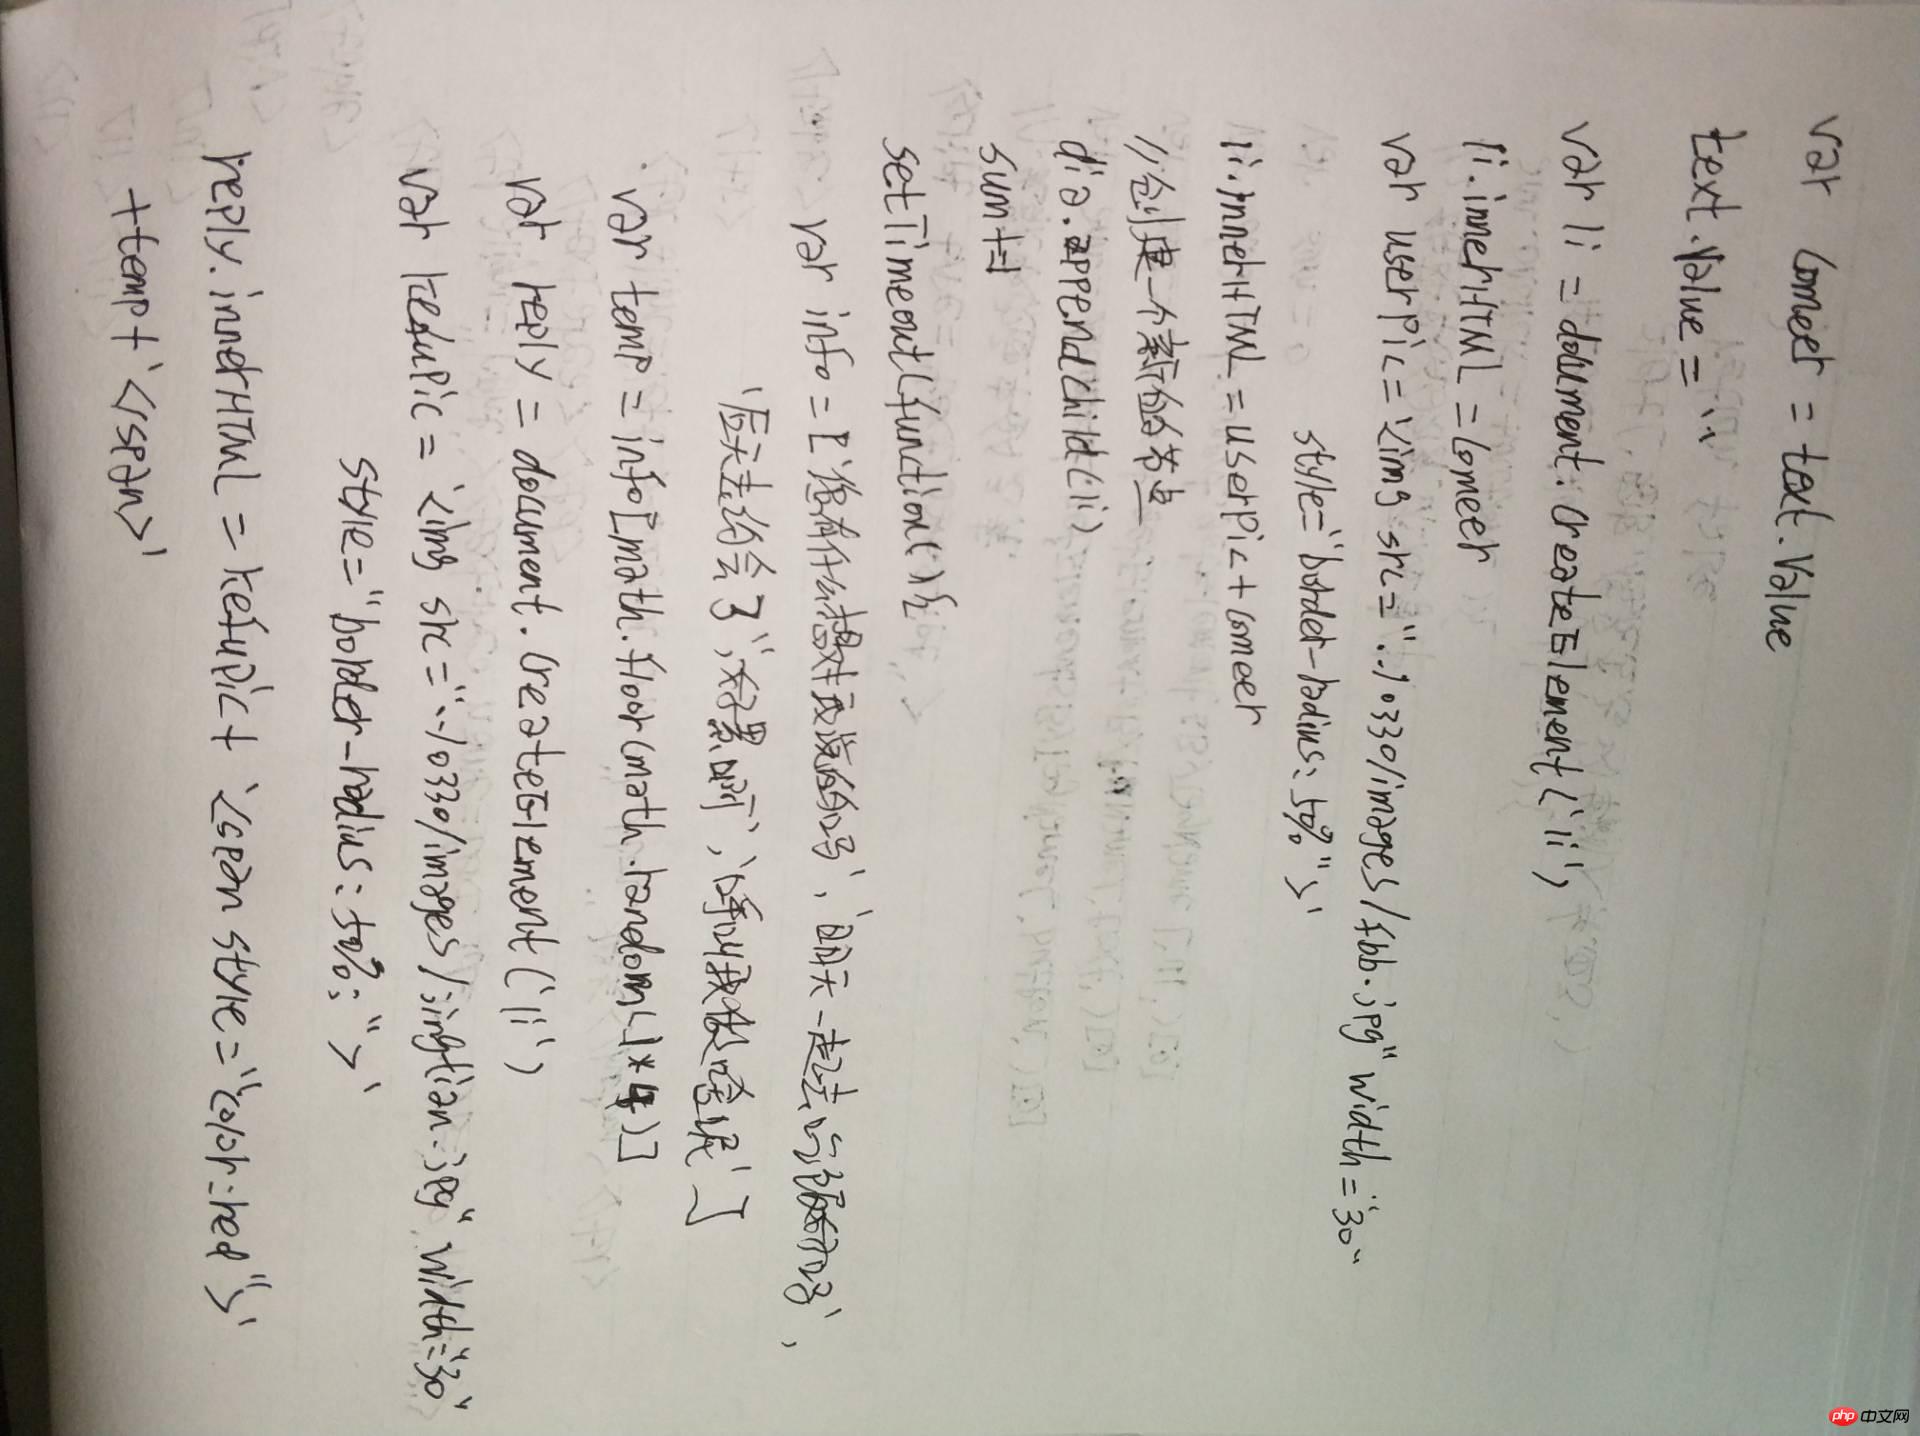 var comeer = text.value
text.value = ''
var li = document.createElement('li')
li.innerHTML = comeer
var userPic = '<img src="../0330/images/fbb.jpg" width="30"
style="border-radius:50%">'
li.innerHTML = userPic + comeer
//创建一个新的节点
dia.appendChild(li)
sum+=1
setTimeout(function(){
var info = ['您有什么想对我说的吗','明天一起去 吗',
'后天去 会了','好累啊','呼叫我做啥呢']
var temp = info[math.floor(math.random()*4)]
var reply = document.createElement('li')
var kefuPic = '<img src="../0330/images/jingtian.jpg" width="30"
style="border-radius:50%;">'
reply.innerHTML = kefupic + '<span style="color:red">'
+temp+'</span>'
php 中文网